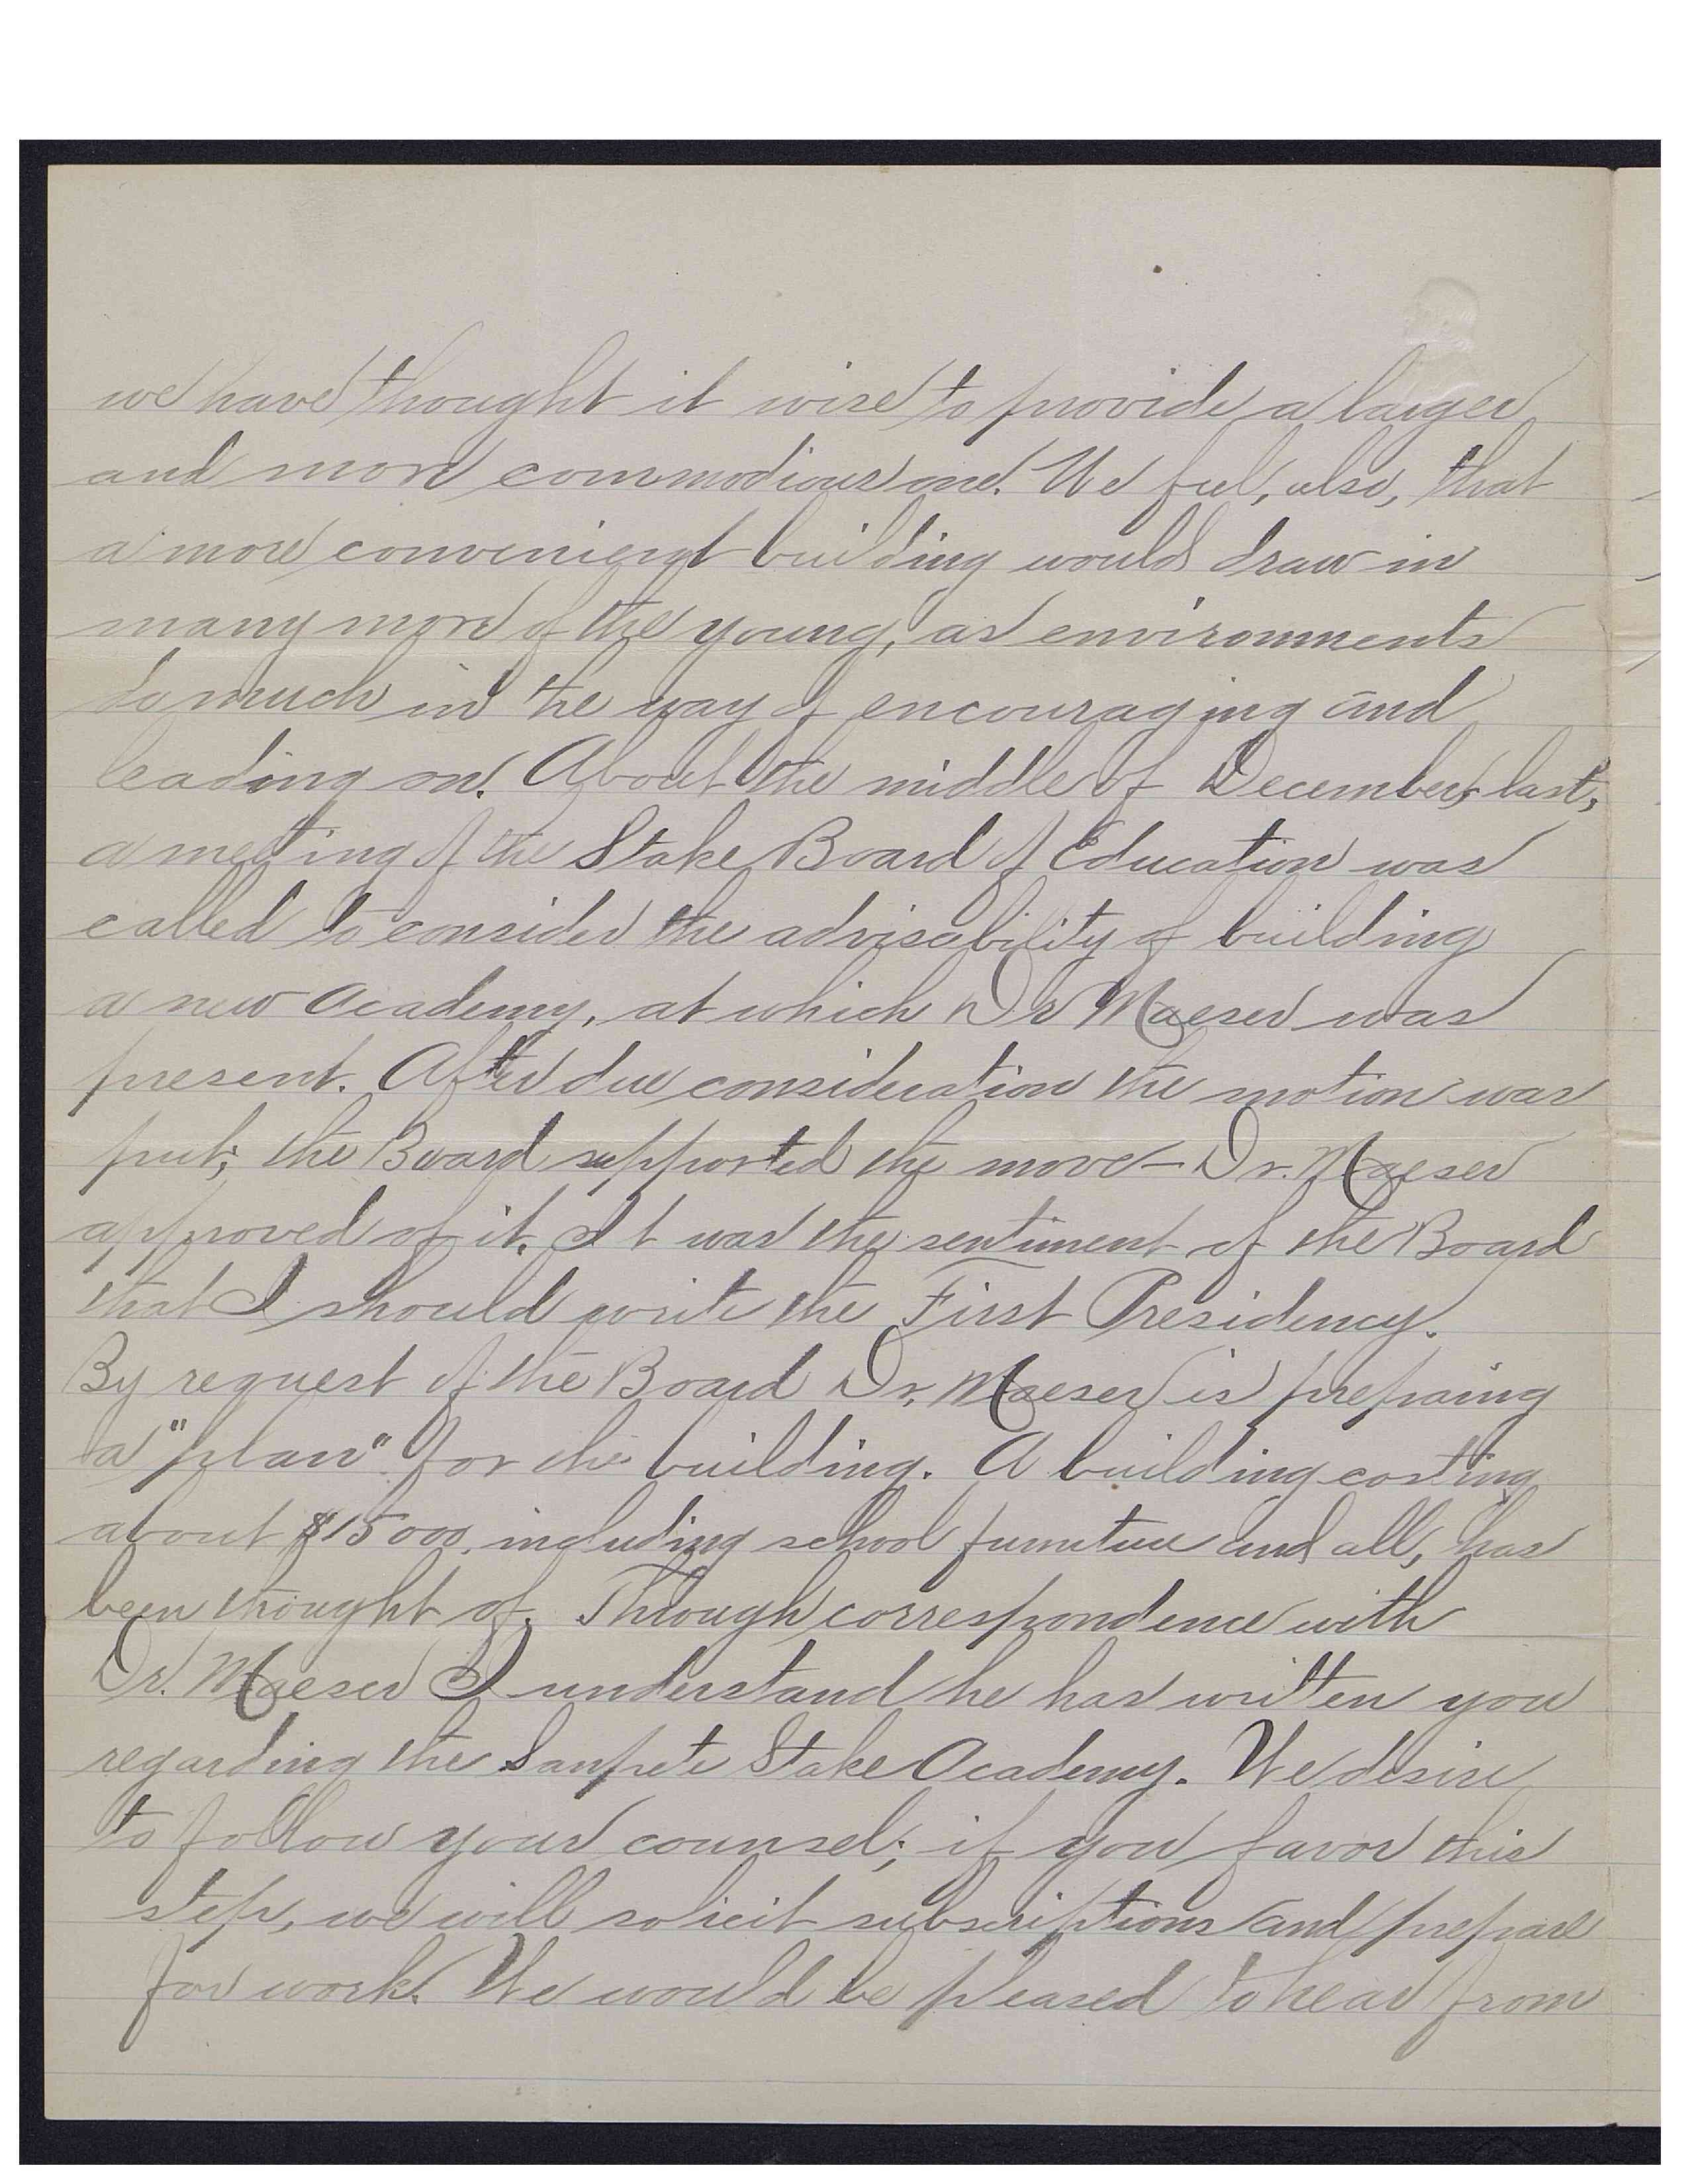 we have thought it wise to provide a larger
and more commodious one. We feel, also, that
a more convenient building would draw in
many more of the young, as environments
do much in the way of encouraging and
leading on. About the middle of December, last,
a meeting of the Stake Board of Education was
called to consider the advisability of building
a new Academy, at which Dr Maeser was
present. After due consideration the motion was
put; the Board supported the move — Dr. Maeser
approved of it. It was the sentiment of the Board
that I should write the First Presidency.
By request of the Board Dr. Maeser is prepairing
a "plan" for the building. A building costing
about $15000, including school furniture and all, has
been thought of. Through correspondence with
Dr. Maeser I understand he has written you
regarding the Sanpete Stake Academy. We desire
to follow your counsel; if you favor this
step, we will solicit subscriptions and prepare
for work. We would be pleased to hear from